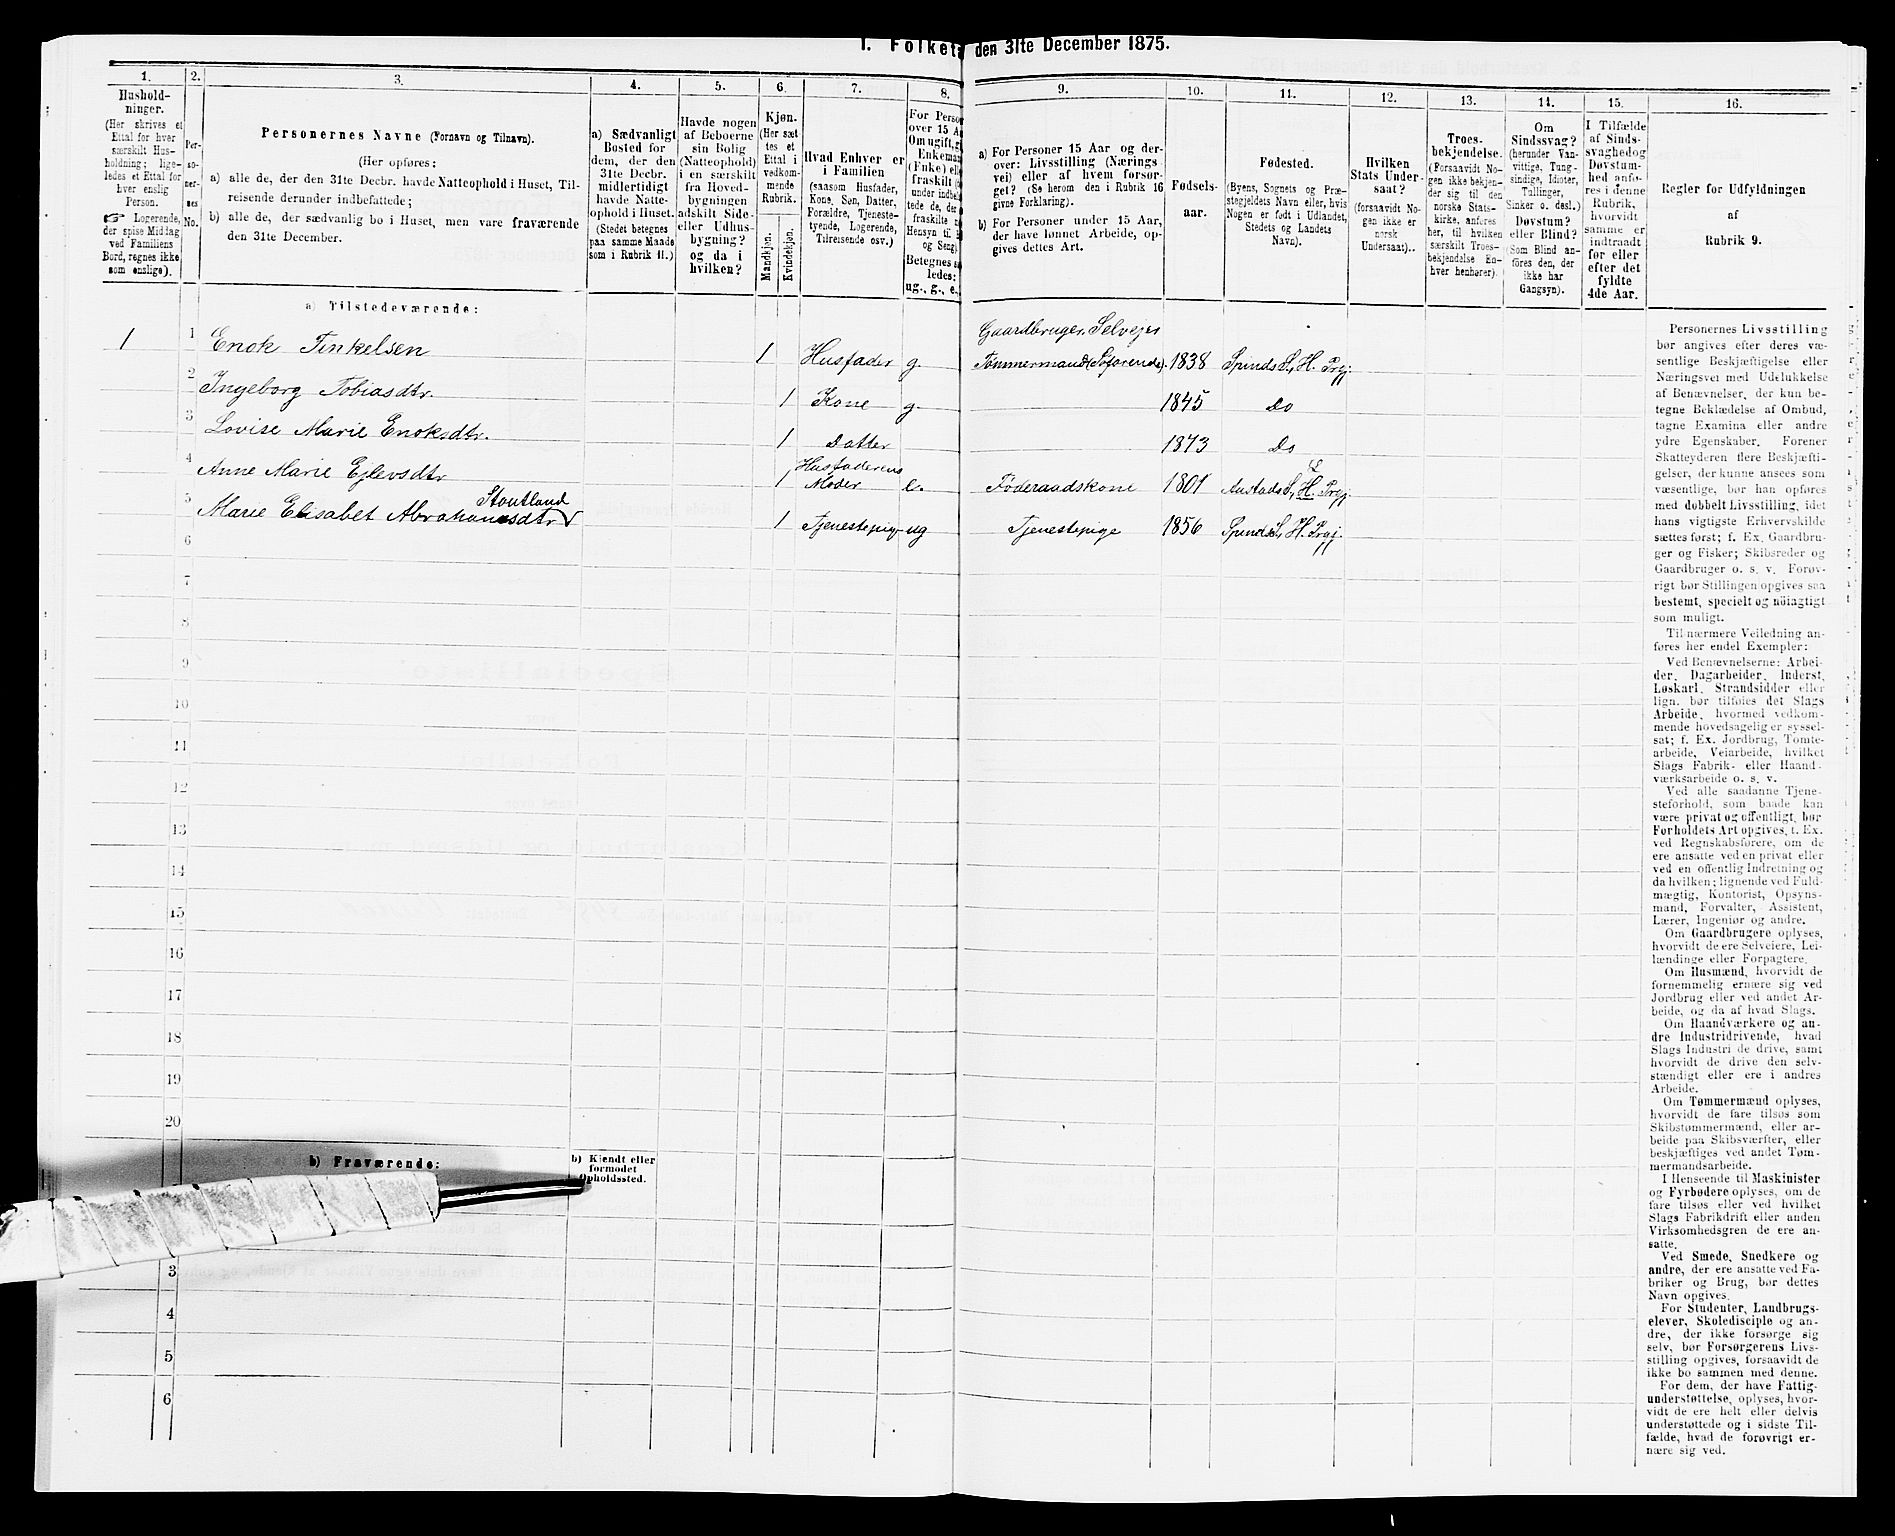 1. Folketa den 31te December 1875.
1.
2.
3.
4.
5.
6.
7.
8.
9.
10.
11.
12.
13.
14.
15.
16.
Hushold-
ninger.
(Her skrives et
Ettal for hver
særskilt Hus-
holdning; lige-
ledes et Ettal for
hver enslig
Person.
☞ Logerende,
der spise Middag
ved Familiens
Bord, regnes ikke
som enslige).
Per-
so-
ner-
nes
No.
Personernes Navne (Fornavn og Tilnavn).
(Her opføres:
a) alle de, der den 31te Decbr. havde Natteophold i Huset, Til-
reisende derunder indbefattede;
b) alle de, der sædvanlig bo i Huset, men vare fraværende
den 31te December.
a) Sædvanligt
Bosted for
dem, der den
31te Decbr.
midlertidigt
havde Natte-
ophold i Huset.
(Stedet betegnes
paa samme Maade
som i Rubrik 11.)
Havde nogen
af Beboerne
sin Bolig
(Natteophold)
i en særskilt
fra Hoved-
bygningen
adskilt Side-
eller Udhus-
bygning?
og da i
hvilken?
Kjøn.
(Her sæt
tes et
Ettal i
vedkom-
mende
Rubrik.
Mandkjøn.
Kvindekjøn.
Hvad Enhver er
i Familien
(saasom Husfader,
Kone, Søn, Datter,
Forældre, Tjeneste-
tyende, Logerende,
Tilreisende osv.)
For Perso
over 15 A
Om ugift, gi
Enkeman
(Enke) elle
fraskilt
under indbe
tede de, der
fraskilte
Hensyn til
og Seng.
Betegnes sa
ledes:
ug., g., e.,
a) For Personer 15 Aar og der-
over: Livsstilling (Nærings
vei) eller af hvem forsør-
get? (Se herom den i Rubrik 16
givne Forklaring).
b) For Personer under 15 Aar,
der have lønnet Arbeide, op-
gives dettes Art.
Fødsels-
aar.
Fødested.
(Byens, Sognets og Præ-
stegjeldets Navn eller, hvis
Nogen er født i Udlandet,
Stedets og Landets
Navn).
Hvilken
Stats Under-
saat?
(forsaavidt No-
gen ikke er
norsk
Undersaat).
Troes-
bekjendelse.
(Forsaavidt No-
gen ikke bekjen-
der sig til den
norske Stats-
kirke, anføres
her, til hvilken
særskilt Troes-
bekjendelse En-
hver henhører).
Om
Sindssvag?
(herunder Van-
vittige, Tung-
sindige, Idioter,
Tullinger,
Sinker o. desl.)
Døvstum?
eller Blind?
(Som Blind an-
føres den, der
ikke har
Gangsyn).
I Tilfælde
af Sinds-
svaghed og
Døvstum-
hed anfø-
res i denne
Rubrik,
hvorvidt
samme er
indtraadt
før eller
efter det
fyldte
4de Aar.
Regler for Udfyldningen
af
Rubrik 9.
a) Tilstedeværende:
1
1
Enok Tinkelsen
1
Husfader
g.
Gaardbruger, Selveier
Tømmermand (Søfarende).
1838
Spinds S., H. Prgj.
2
Ingeborg Tobiasdtr.
1
Kone
g.
1845
Do
3
Lovise Marie Enoksdtr.
1
Datter
1873
Do
4
Anne Marie Ejlevsdtr
1
Husfaderens
Moder
e.
Føderaadskone
1801
Austads S., H. Prgj.
5
Stoutland
Marie Elisabet Abrahamsdtr
1
Tjenestepige
ug
Tjenestepige
1856
Spinds S., H. Prgj.
6
7
8
9
10
11
12
13
14
15
16
17
18
19
20
b) Fraværende:
b) Kjendt eller
formodet
Opholdssted.
3
4
5
6
Personernes Livsstilling
bør angives efter deres væ-
sentlige Beskjæftigelse eller
Næringsvei med Udelukkelse
af Benævnelser, der kun be-
tegne Beklædelse af Ombud,
tagne Examina eller andre
ydre Egenskaber. Forener
Skatteyderen flere Beskjæfti-
gelser, der kunne ansees som
væsentlige, bør han opføres
med dobbelt Livsstilling, idet
hans vigtigste Erhvervskilde
sættes først; f. Ex. Gaardbru-
ger og Fisker; Skibsreder og
Gaardbruger o. s. v. Forøv-
rigt bør Stillingen opgives saa
bestemt, specielt og nöiagtigt
som muligt.
Til nærmere Veiledning an-
føres her endel Exempler:
Ved Benævnelserne: Arbei-
der, Dagarbeider, Inderst,
Løskarl, Strandsidder eller
lign. bør tilføies det Slags
Arbeide, hvormed vedkom-
mende hovedsagelig er syssel-
sat; f. Ex. Jordbrug, Tomte-
arbeide, Veiarbeide, hvilket
Slags Fabrik- eller Haand-
værksarbeide o. s. v.
Ved alle saadanne Tjene-
steforhold, som baade kan
være privat og offentligt, bør
Forholdets Art opgives, t. Ex.
ved Regnskabsførere, om de
ere ansatte ved en privat eller
ved en offentlig Indretning og
da hvilken; lignende ved Fuld-
mægtig, Kontorist, Opsyns-
mand, Forvalter, Assistent,
Lærer, Ingeniør og andre.
Om Gaardbrugere oplyses,
hvorvidt de ere Selveiere, Lei-
lændinge eller Forpagtere.
Om Husmænd, hvorvidt de
fornemmelig ernære sig ved
Jordbrug eller ved andet Ar-
beide, og da af hvad Slags.
Om Haandværkere og an-
dre Industridrivende, hvad
Slags Industri de drive, samt
hvorvidt de drive den selv-
stændigt eller ere i andres
Arbeide.
Om Tømmermænd oplyses,
hvorvidt de fare tilsøs som
Skibstømmermænd, eller ar-
beide paa Skibsværfter, eller
beskjæftiges ved andet Tøm-
mermandsarbeide.
I Henseende til Maskinister
og Fyrbødere oplyses, om de
fare tilsøs eller ved hvilket
Slags Fabrikdrift eller anden
Virksomhedsgren de ere an-
satte.
Ved Smede, Snedkere og
andre, der ere ansatte ved Fa-
briker og Brug, bør dettes
Navn opgives.
For Studenter, Landbrugs-
elever, Skoledisciple og an-
dre, der ikke forsørge sig
selv, bør Forsørgerens Livs-
stilling opgives, forsaavidt de
ikke bo sammen med denne.
For dem, der have Fattig-
understøttelse, oplyses, hvor-
vidt de ere helt eller delvis
understøttede og i sidste Til-
fælde, hvad de forøvrigt er-
nære sig ved.